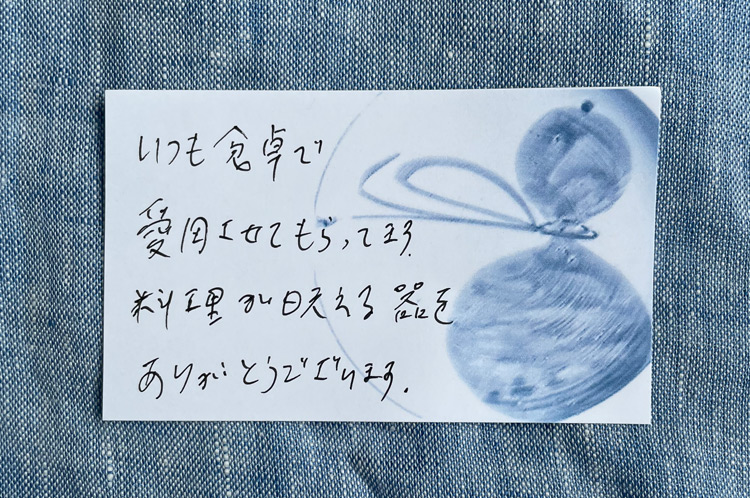 いつも食卓で
愛用させてもらってます.
料理が映える器を
ありがとうございます.